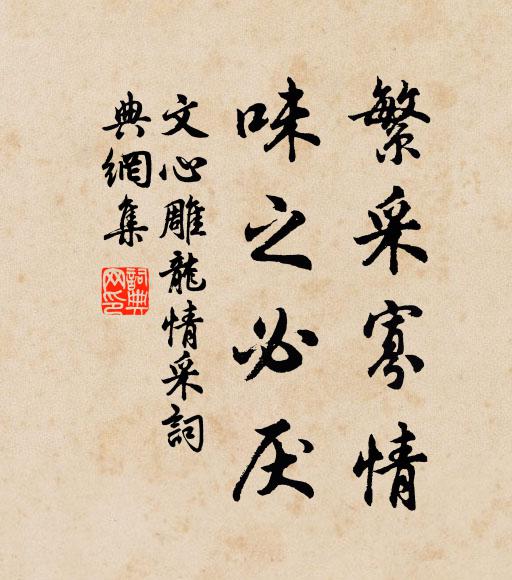 繁采寡情
味之必厌
文心雕龍情采詞
典網集
詞典網印